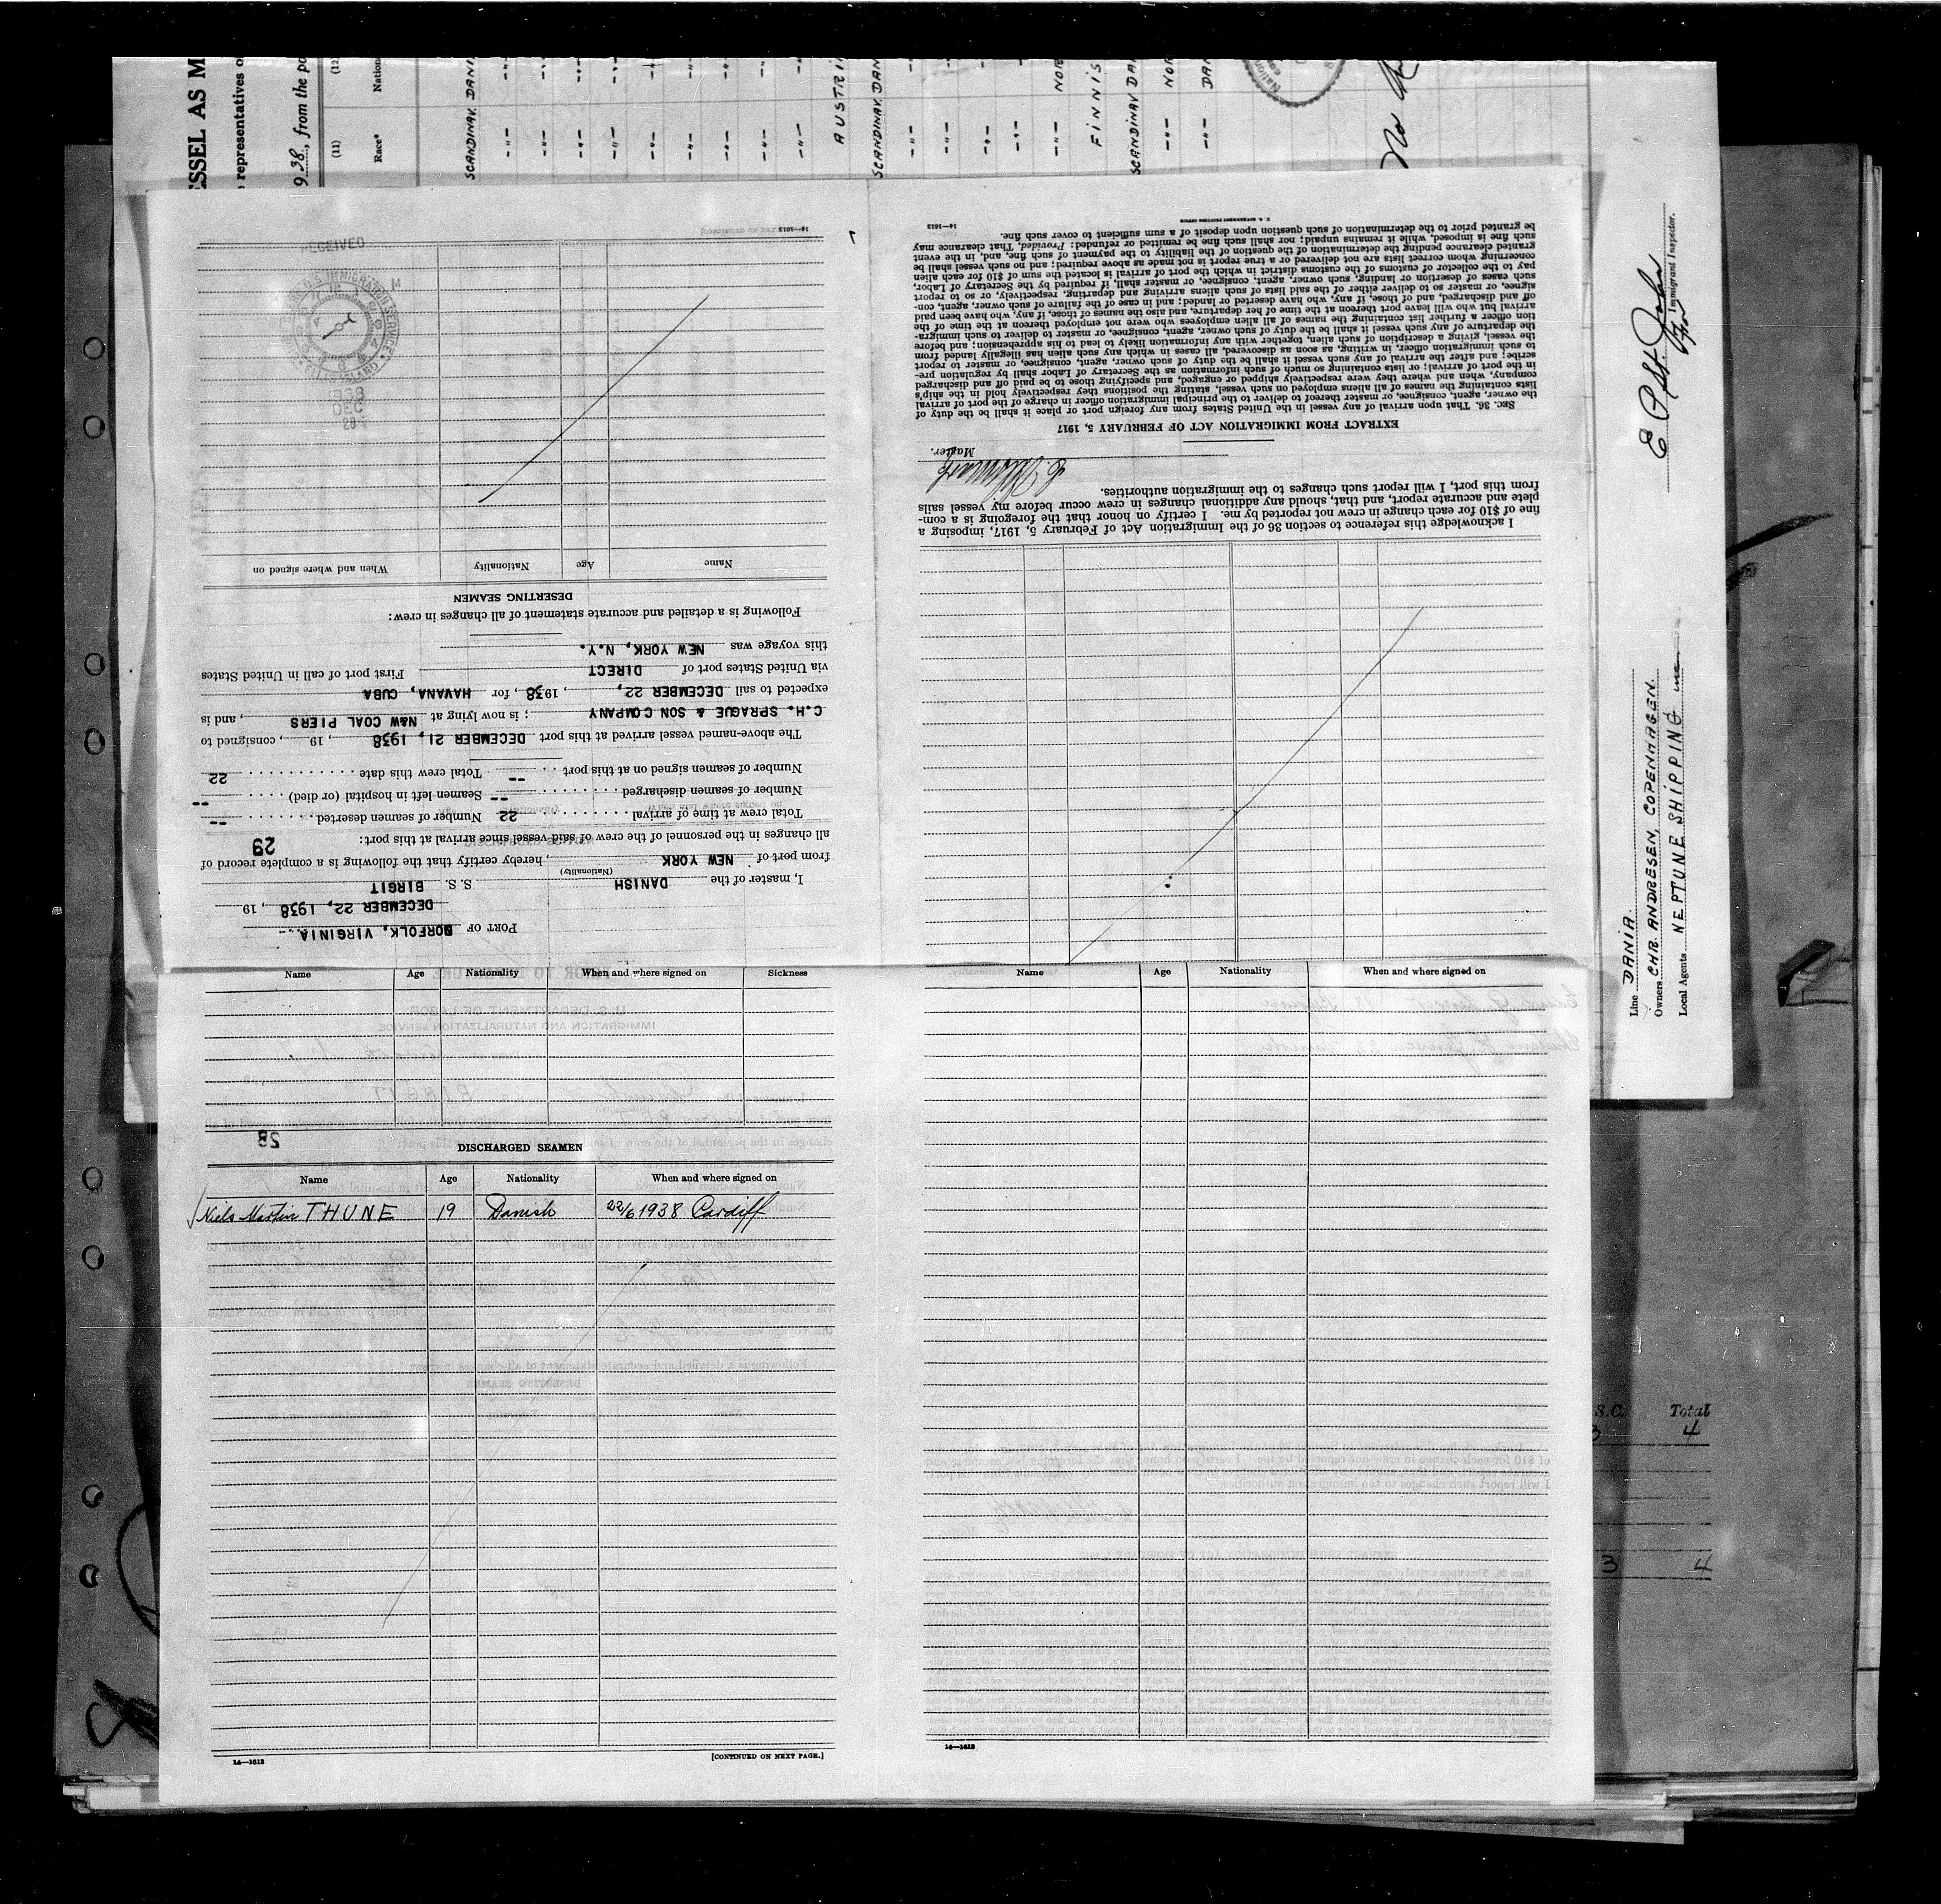 SSEL AS M
representatives o
9 38, from the po
(11)
(12)
Race*
Nation
SCANDINAV. DANI
AUSTRI
SCANDINAV. DAN
NOR
FINNIS
SCANDINAV DA
NOR
DAN
Immigrant Inspector.
Line DANIA
Owners CHR. ANDRESEN, COPENHAGEN.
Local Agents NEPTUNE SHIPPING
PORT OF NORFOLK, VIRGINIA
DECEMBER 22, 1938, 19
I, master of the DANISH S. S. BIRGIT
(Nationality)
from port of NEW YORK, hereby certify that the following is a complete record of
all changes in the personnel of the crew of said vessel since arrival at this port:
29
Total crew at time of arrival 22 Number of seamen deserted --
Number of seamen discharged -- Seamen left in hospital (or died) --
Number of seamen signed on at this port -- Total crew this date 22
The above-named vessel arrived at this port DECEMBER 21, 1938, 19 , consigned to
C.H. SPRAGUE & SON COMPANY; is now lying at N&W COAL PIERS, and is
expected to sail DECEMBER 22, , 1938, for HAVANA, CUBA
via United States port of DIRECT First port of call in United States
this voyage was NEW YORK, N.Y.
Following is a detailed and accurate statement of all changes in crew:
DESERTING SEAMEN
Name Age Nationality When and where signed on
RECEIVED
1938
DEC
14—1613
I acknowledge this reference to section 36 of the Immigration Act of February 5, 1917, imposing a
fine of $10 for each change in crew not reported by me. I certify on honor that the foregoing is a com-
plete and accurate report, and that, should any additional changes in crew occur before my vessel sails
from this port, I will report such changes to the immigration authorities.
Master.
EXTRACT FROM IMMIGRATION ACT OF FEBRUARY 5, 1917
SEC. 36. That upon arrival of any vessel in the United States from any foreign port or place it shall be the duty of
the owner, agent, consignee, or master thereof to deliver to the principal immigration officer in charge of the port of arrival
lists containing the names of all aliens employed on such vessel, stating the positions they respectively hold in the ship's
company, when and where they were respectively shipped or engaged, and specifying those to be paid off and discharged
in the port of arrival; or lists containing so much of such information as the Secretary of Labor shall by regulation pre-
scribe; and after the arrival of any such vessel it shall be the duty of such owner, agent, consignee, or master to report
to such immigration officer, in writing, as soon as discovered, all cases in which any such alien has illegally landed from
the vessel, giving a description of such alien, together with any information likely to lead to his apprehension; and before
the departure of any such vessel it shall be the duty of such owner, agent, consignee, or master to deliver to such immigra-
tion officer a further list containing the names of all alien employees who were not employed thereon at the time of the
arrival but who will leave port thereon at the time of her departure, and also the names of those, if any, who have been paid
off and discharged, and of those, if any, who have deserted or landed; and in case of the failure of such owner, agent, con-
signee, or master so to deliver either of the said lists of such aliens arriving and departing, respectively, or so to report
such cases of desertion or landing, such owner, agent, consignee, or master, shall, if required by the Secretary of Labor,
pay to the collector of customs of the customs district in which the port of arrival is located the sum of $10 for each alien
concerning whom correct lists are not delivered or a true report is not made as above required; and no such vessel shall be
granted clearance pending the determination of the question of the liability to the payment of such fine, and, in the event
such fine is imposed, while it remains unpaid; nor shall such fine be remitted or refunded: Provided, That clearance may
be granted prior to the determination of such question upon deposit of a sum sufficient to cover such fine.
14—1613
U. S. GOVERNMENT PRINTING OFFICE
Name Age Nationality When and where signed on Sickness
28
DISCHARGED SEAMEN
Name Age Nationality When and where signed on
Niels Martin THUNE 19 Danish 22/6 1938 Cardiff
14—1613
[CONTINUED ON NEXT PAGE.]
Name Age Nationality When and where signed on
14—1613
S.C. Total
3 4
3 4